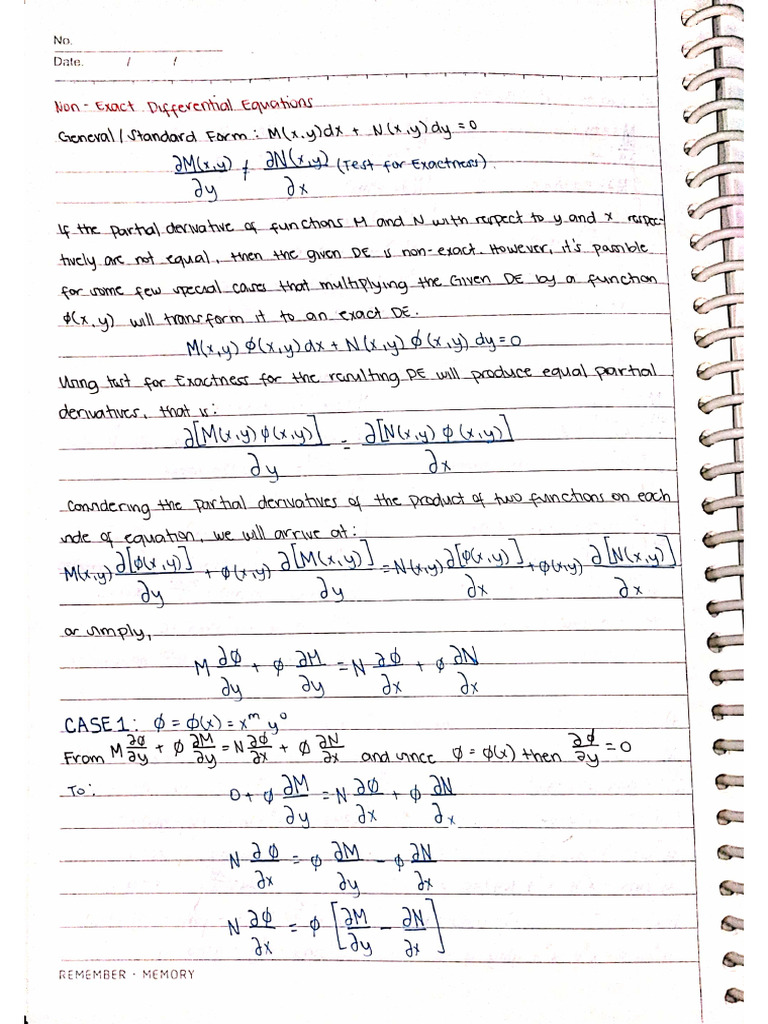 No.
Date. / /
Non-Exact Differential Equations
General/Standard Form: M(x,y)dx + N(x,y)dy = 0
∂M(x,y)/∂y ≠ ∂N(x,y)/∂x (Test for Exactness).
If the partial derivative of functions M and N with respect to y and x respec-
tively are not equal, then the given DE is non-exact. However, it's possible
for some few special cases that multiplying the Given DE by a function
ϕ(x,y) will transform it to an exact DE.
M(x,y) ϕ(x,y) dx + N(x,y) ϕ(x,y) dy = 0
Using test for Exactness for the resulting DE will produce equal partial
derivatives, that is:
∂[M(x,y) ϕ(x,y)]/∂y = ∂[N(x,y) ϕ(x,y)]/∂x
Considering the partial derivatives of the product of two functions on each
side of equation, we will arrive at:
M(x,y) ∂[ϕ(x,y)]/∂y + ϕ(x,y) ∂[M(x,y)]/∂y = N(x,y) ∂[ϕ(x,y)]/∂x + ϕ(x,y) ∂[N(x,y)]/∂x
or simply,
M ∂ϕ/∂y + ϕ ∂M/∂y = N ∂ϕ/∂x + ϕ ∂N/∂x
CASE 1: ϕ = ϕ(x) = x^m y^0
From M ∂ϕ/∂y + ϕ ∂M/∂y = N ∂ϕ/∂x + ϕ ∂N/∂x and since ϕ = ϕ(x) then ∂ϕ/∂y = 0
To: 0 + ϕ ∂M/∂y = N ∂ϕ/∂x + ϕ ∂N/∂x
N ∂ϕ/∂x = ϕ ∂M/∂y - ϕ ∂N/∂x
N ∂ϕ/∂x = ϕ [∂M/∂y - ∂N/∂x]
REMEMBER · MEMORY